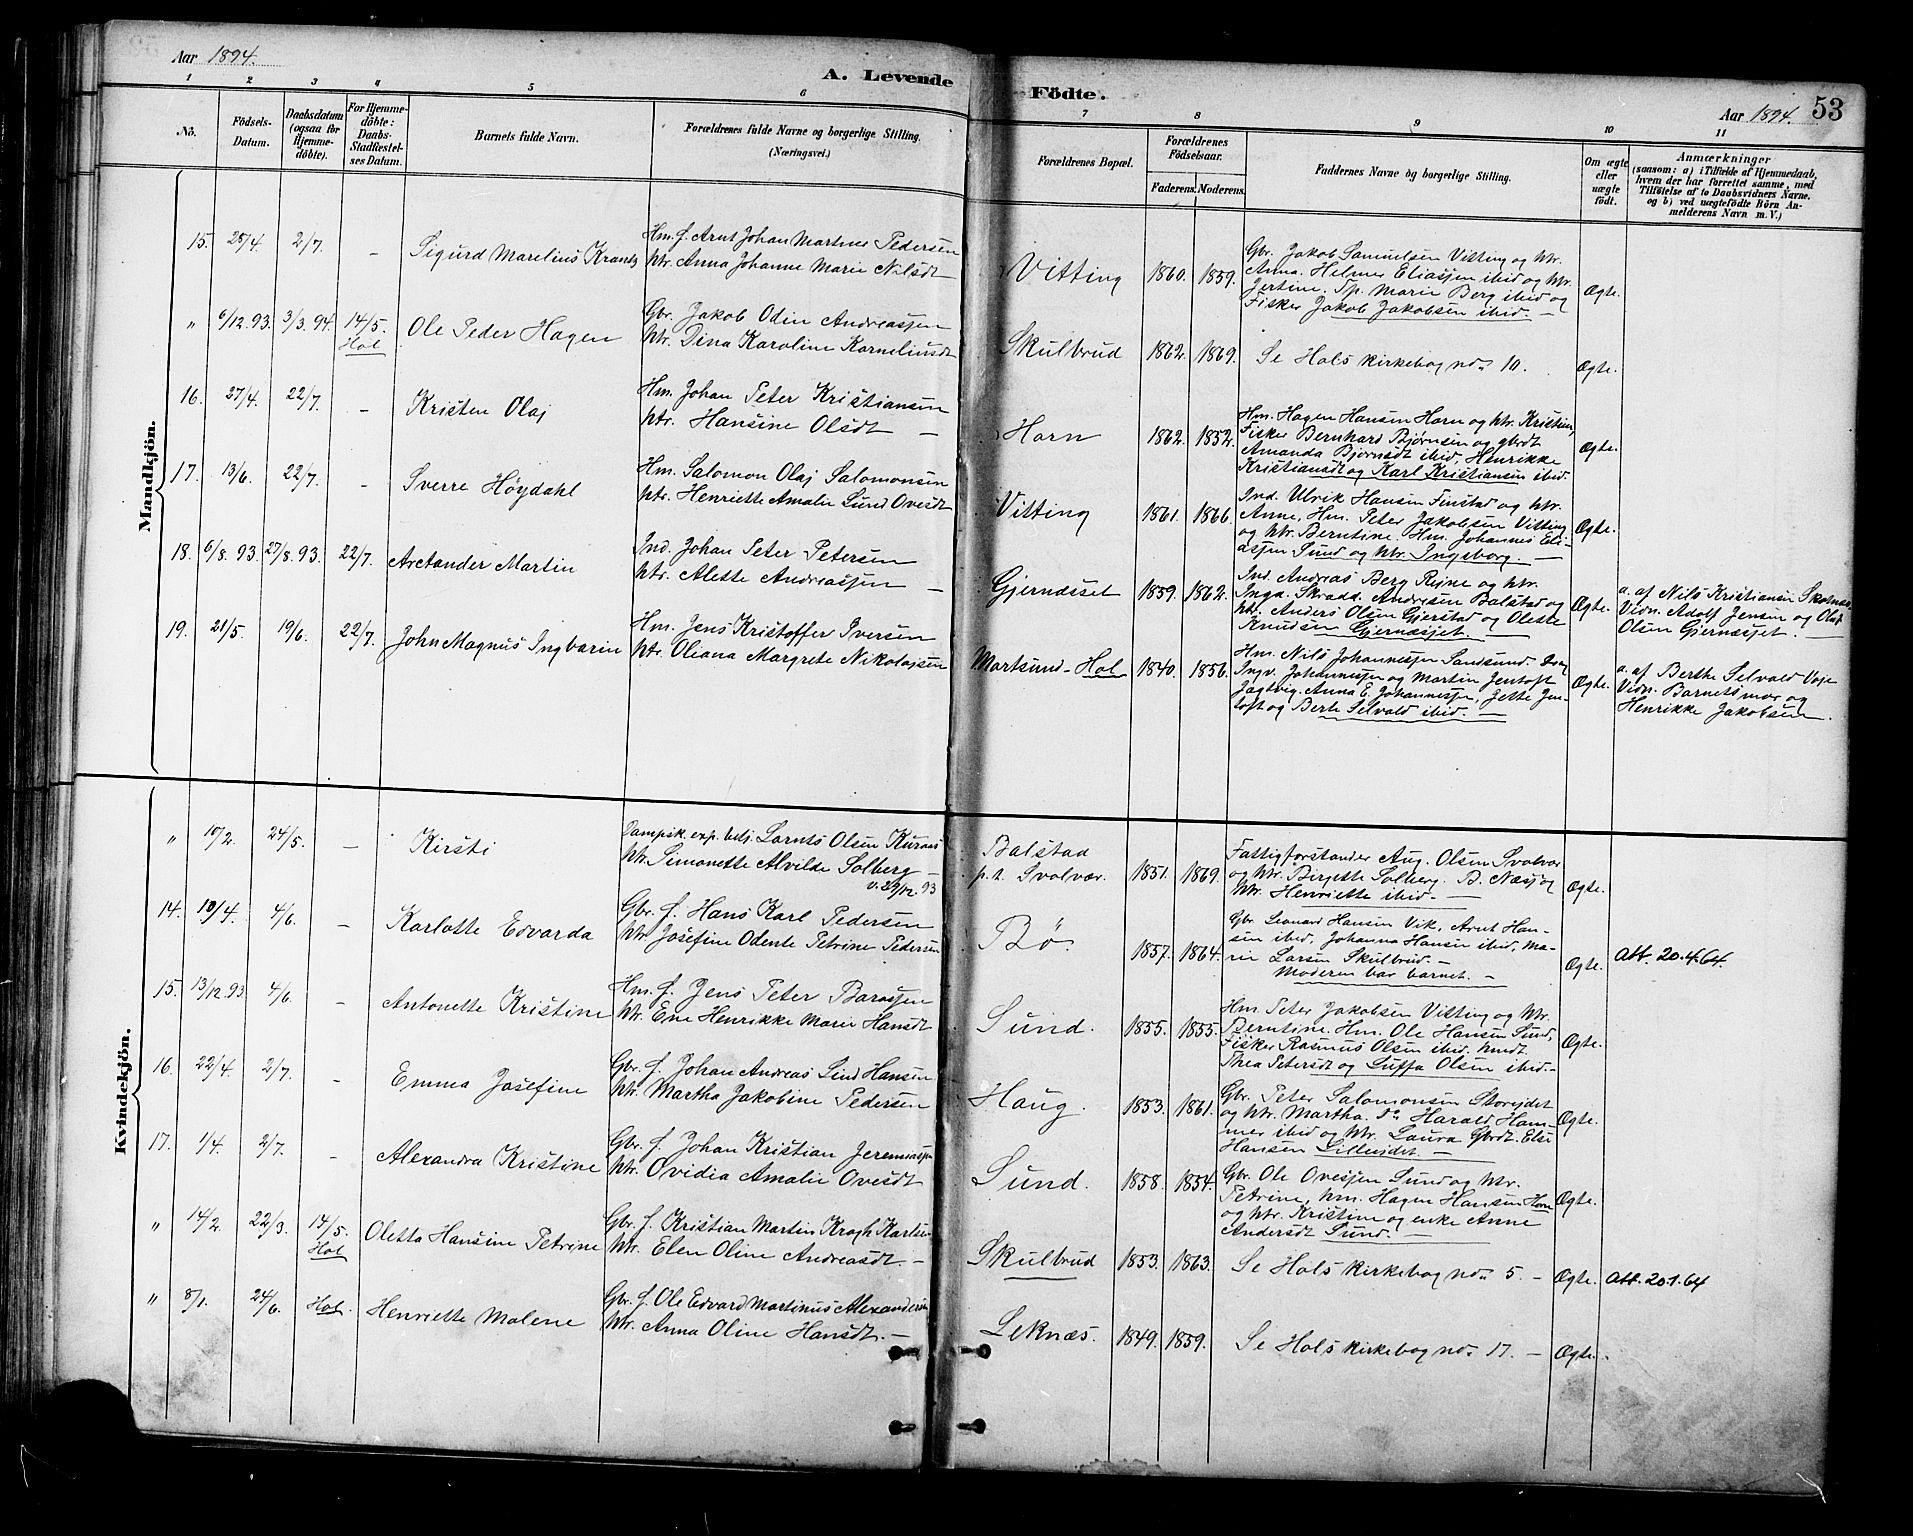 Aar 1894.
A. Levende
Födte.
Aar 1894.
53
1 2 3 4 5 6 7 8 9 10 11
No.
Födsels-
Datum.
Daabsdatum
(ogsaa for
Hjemme-
döbte).
For Hjemme-
döbte:
Daabs-
Stadfæstel-
ses Datum.
Barnets fulde Navn.
Forældrenes fulde Navne og borgerlige Stilling.
(Næringsvei.)
Forældrenes Bopæl.
Forældrenes
Födselsaar.
Faderens. Moderens.
Faddernes Navne og borgerlige Stilling.
Om ægte
eller
uægte
födt.
Anmærkninger
(saasom: a) i Tilfælde af Hjemmedaab,
hvem der har forrettet samme, med
Tilföielse af to Daabsvidners Navne.
og b) ved uægtefödte Börn An-
melderens Navn m. V.)
Mandkjön.
15. 28/4. 2/7. - Sigurd Marelius Krantz
Hm. f. Arnt Johan Martnus Pedersen
htr. Anna Johanne Marie Nilsdt
Vitting 1860. 1859.
Gbr. Jakob Samuelsen Vitting og htr.
Anna. Helmer Eliassen ibid og htr.
Jertine. Sp. Marie Berg ibid og
Fisker Jakob Jakobsen ibid. -
Ægte.
" 6/12.93. 3/3.94. 14/5.
Hol
Ole Peder Hagen
Gbr. Jakob Odin Andreassen
htr. Dina Karoline Korneliusdt
Skulbrud 1862. 1869. Se Hols kirkebog no. 10. Ægte.
16. 27/4. 22/7. - Kristen Olaj
Hm. Johan Peter Kristiansen
htr. Hansine Olsdt -
Horn 1862. 1852.
Hm. Hagen Hansen Horn og htr. Kristine,
Fisker Bernhard Bjørnsen og gbrdt
Amanda Bjørnsdt ibid, Henrikke
Kristiansdt og Karl Kristiansen ibid.
Ægte.
17. 13/6. 22/7. - Sverre Höydahl
Hm. Salomon Olaj Salomonsen
htr. Henriette Amalie Lund Ovesdt
Vitting 1861. 1866.
Ind. Ulrik Hansen Finstad og htr.
Anne, Hm. Peter Jakobsen Vitting
og htr. Berntine. Hm. Johannes Eli-
assen Sund og htr. Ingeborg. -
Ægte.
18. 6/8.93. 27/8.93. 22/7. Arctander Martin
Ind. Johan Peter Petersen
htr. Alette Andreassen -
Gjernæsset 1859. 1862.
Ind. Andreas Berg Reine og htr.
Inga. Skradd. Andresen Balstad og
htr. Anders Olsen Gjerstad og Olette
Knudsen Gjernæsset. -
Ægte.
a. af Nils Kristiansen
Vidn. Adolf Jensen og Olaf
Olsen Gjernæsset.
19. 21/5. 19/6. 22/7. John Magnus Ingvarin
Hm. Jens Kristoffer Iversen
htr. Oliana Margrete Nikolajsen
Mortsund-Hol 1840. 1856.
Hm. Nils Johannessen Sandsund.
Ingv. Johannessen og Martin Jentoft
Jagtvig. Anna E. Johannessen, Jette Jen-
toft og Berte Selvald ibid. -
Ægte.
a. af Berthe Selvald Voje
Vidn. Barnets mor og
Henrikke Jakobsen.
Kvindekjön.
" 10/2. 24/5. - Kirsti
Dampsk. exp. Lornts Olsen Kuraas
htr. Simonette Alvilde Solberg -
v. 29/12.93
Balstad
p.t. Svolvær. 1851. 1869.
Fattigforstander Aug. Olsen Svolvær
og htr. Birgette Solberg. B. Næss og
htr. Henriette ibid. -
Ægte.
14. 10/4. 4/6. - Karlotte Edvarda
Gbr. f. Hans Karl Pedersen
htr. Josefine Odente Petrine Pedersen
Bö. 1857. 1864.
Gbr. Leonard Hansen Vik, Arnt Han-
sen ibid, Johanna Hansen ibid, Ma-
rie Larsen Skulbrud. -
Moderen bar barnet. -
Ægte. Att. 20.4.64.
15. 13/12.93. 4/6. - Antonette Kristine
Hm. f. Jens Peter Barossen
htr. Ene Henrikke Marie Hansdt
Sund. 1855. 1855.
Hm Peter Jakobsen Vitting og htr.
Berntine. Hm. Ole Hansen Sund,
Fisker Rasmus Olsen ibid. hmdt
Thea Petersdt og Luffa Olsen ibid. -
Ægte.
16. 22/4. 2/7. - Emma Josefine
Gbr. f. Johan Andreas Lind Hansen
htr. Martha Jakobine Pedersen
Haug. 1853. 1861.
Gbr. Peter Salomonsen Storeidet
og htr. Martha. do Harald Ham-
mer ibid og htr. Laura Gbrdt. Else
Hansen Lilleeidet. -
Ægte.
17. 1/4. 2/7. - Alexandra Kristine
Gbr. f. Johan Kristian Jeremiassen
htr. Ovidia Amalie Ovesdt
Sund. 1858. 1854.
Gbr. Ole Ovessen Sund og htr.
Petrine, hm. Hagen Hansen Horn
og htr. Kristine og enke Anne
Andersdt Sund. -
Ægte.
" 14/2. 22/3. 14/5.
Hol
Oletta Hansine Petrine
Gbr. f. Kristian Martin Krogh Karlsen
htr. Elen Oline Andreasdt. -
Skulbrud 1853. 1863. Se Hols kirkebog no. 5. - Ægte. Att. 20.1.64
" 8/1. 24/6. Hol. Henriette Malene
Gbr. f. Ole Edvard Martinus Alexandersen
htr. Anna Oline Hansdt. -
Leknæs. 1849. 1859. Se Hols kirkebog no. 17. - Ægte.